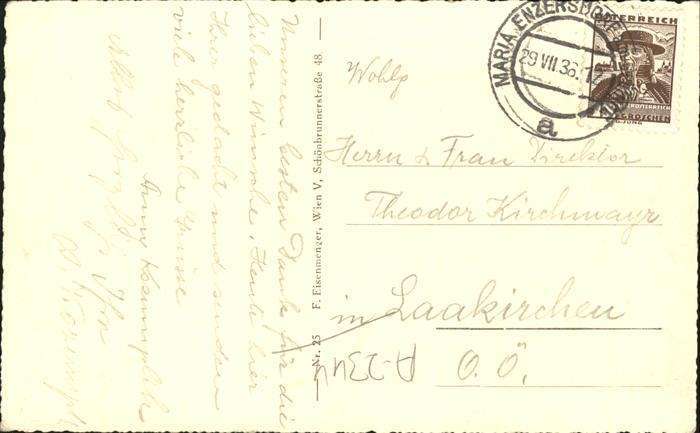 Unseren besten Dank für die
lieben Wünsche. Heute hier
Ihrer gedacht und senden
viele herzliche Grüsse
Anna
Nr. 25 F. Eisenmenger, Wien V, Schönbrunnerstraße 48.
MARIA ENZERSDORF
29 VII. 36. 12
a
ÖSTERREICH
GROSCHEN
Wohlg
Herrn & Frau Direktor
Theodor Kirchmayr
in Laakirchen
O.Ö.
A-2344